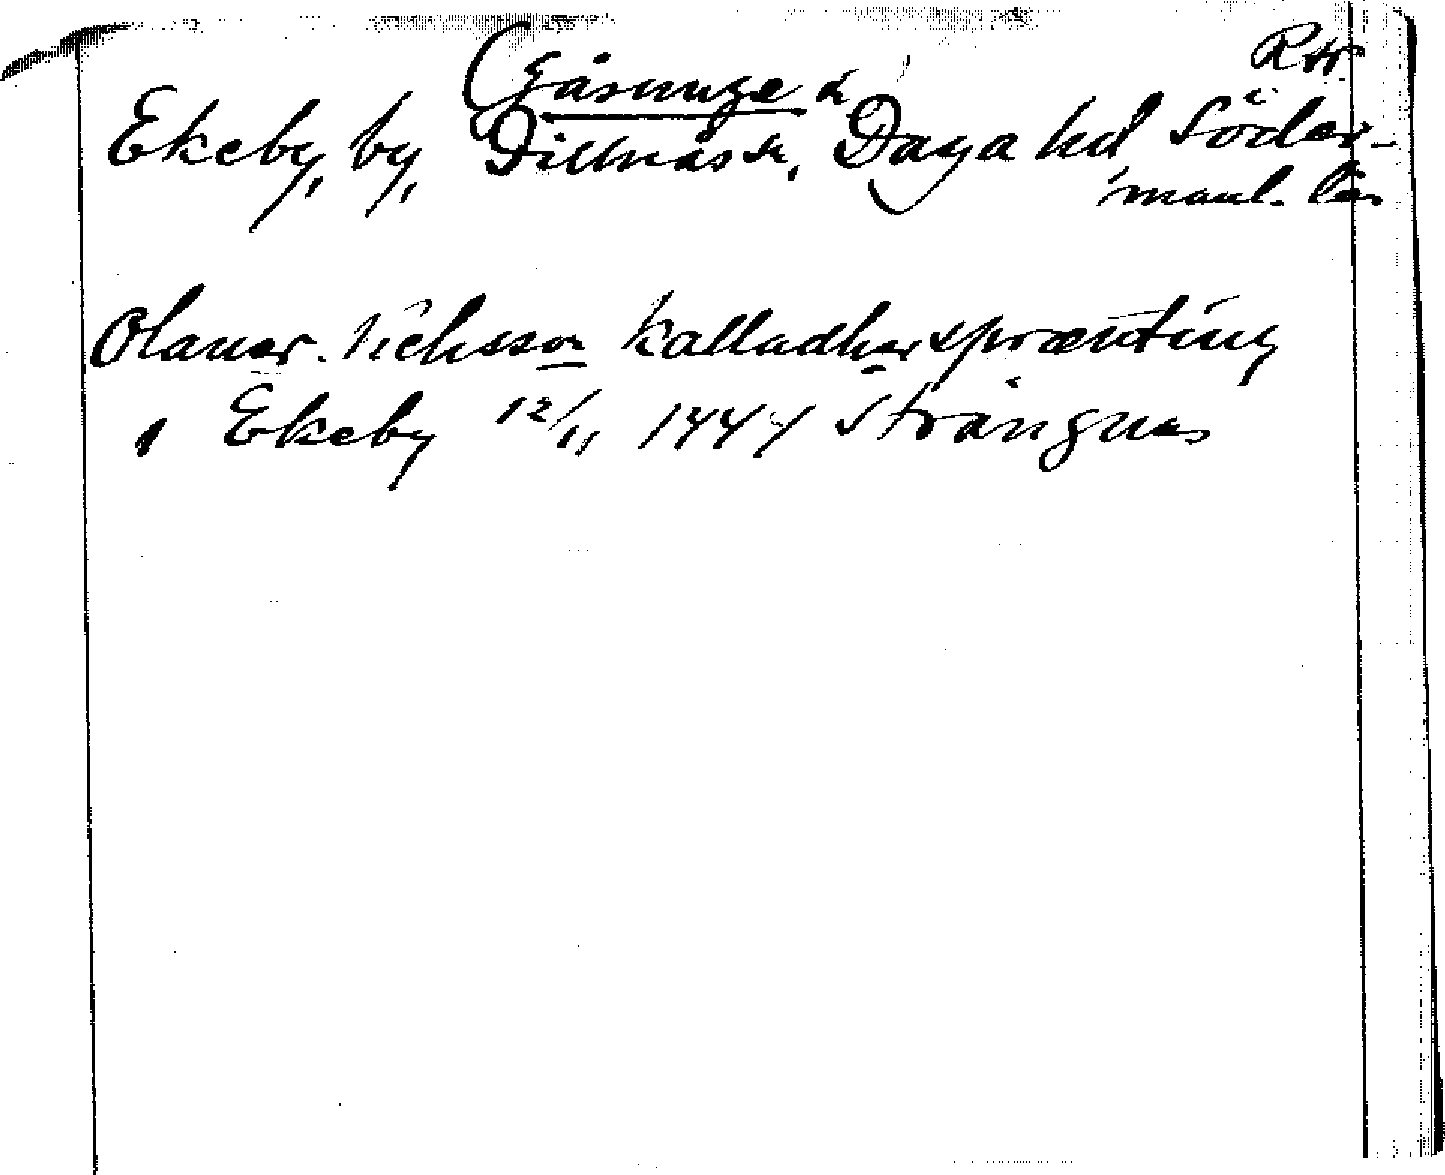 (Gåsinge &
Ekeby, by, Dillnäs sn, Daga hd Söder-
manl. län
Olauar Nichsson kalladher sprænting
i Ekeby 12/11 1444 Strängnes